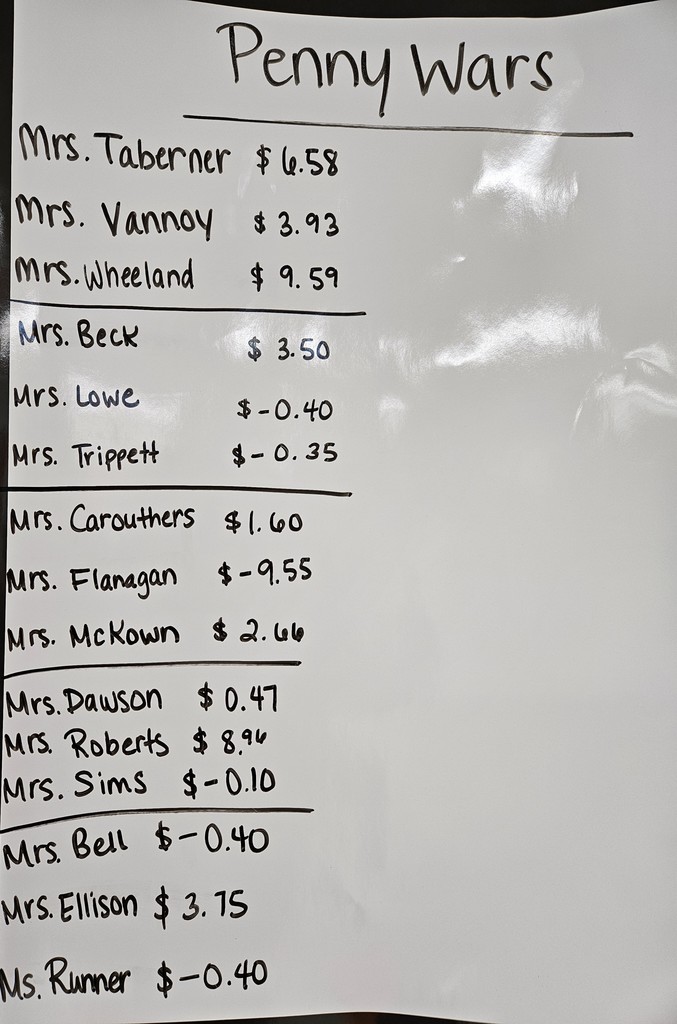 Penny Wars
Mrs. Taberner $ 6.58
Mrs. Vannoy $ 3.93
Mrs. Wheeland $ 9.59
Mrs. Beck $ 3.50
Mrs. Lowe $-0.40
Mrs. Trippett $-0.35
Mrs. Carouthers $1.60
Mrs. Flanagan $-9.55
Mrs. McKown $ 2.66
Mrs. Dawson $ 0.47
Mrs. Roberts $ 8.96
Mrs. Sims $-0.10
Mrs. Bell $-0.40
Mrs. Ellison $ 3.75
Ms. Runner $-0.40